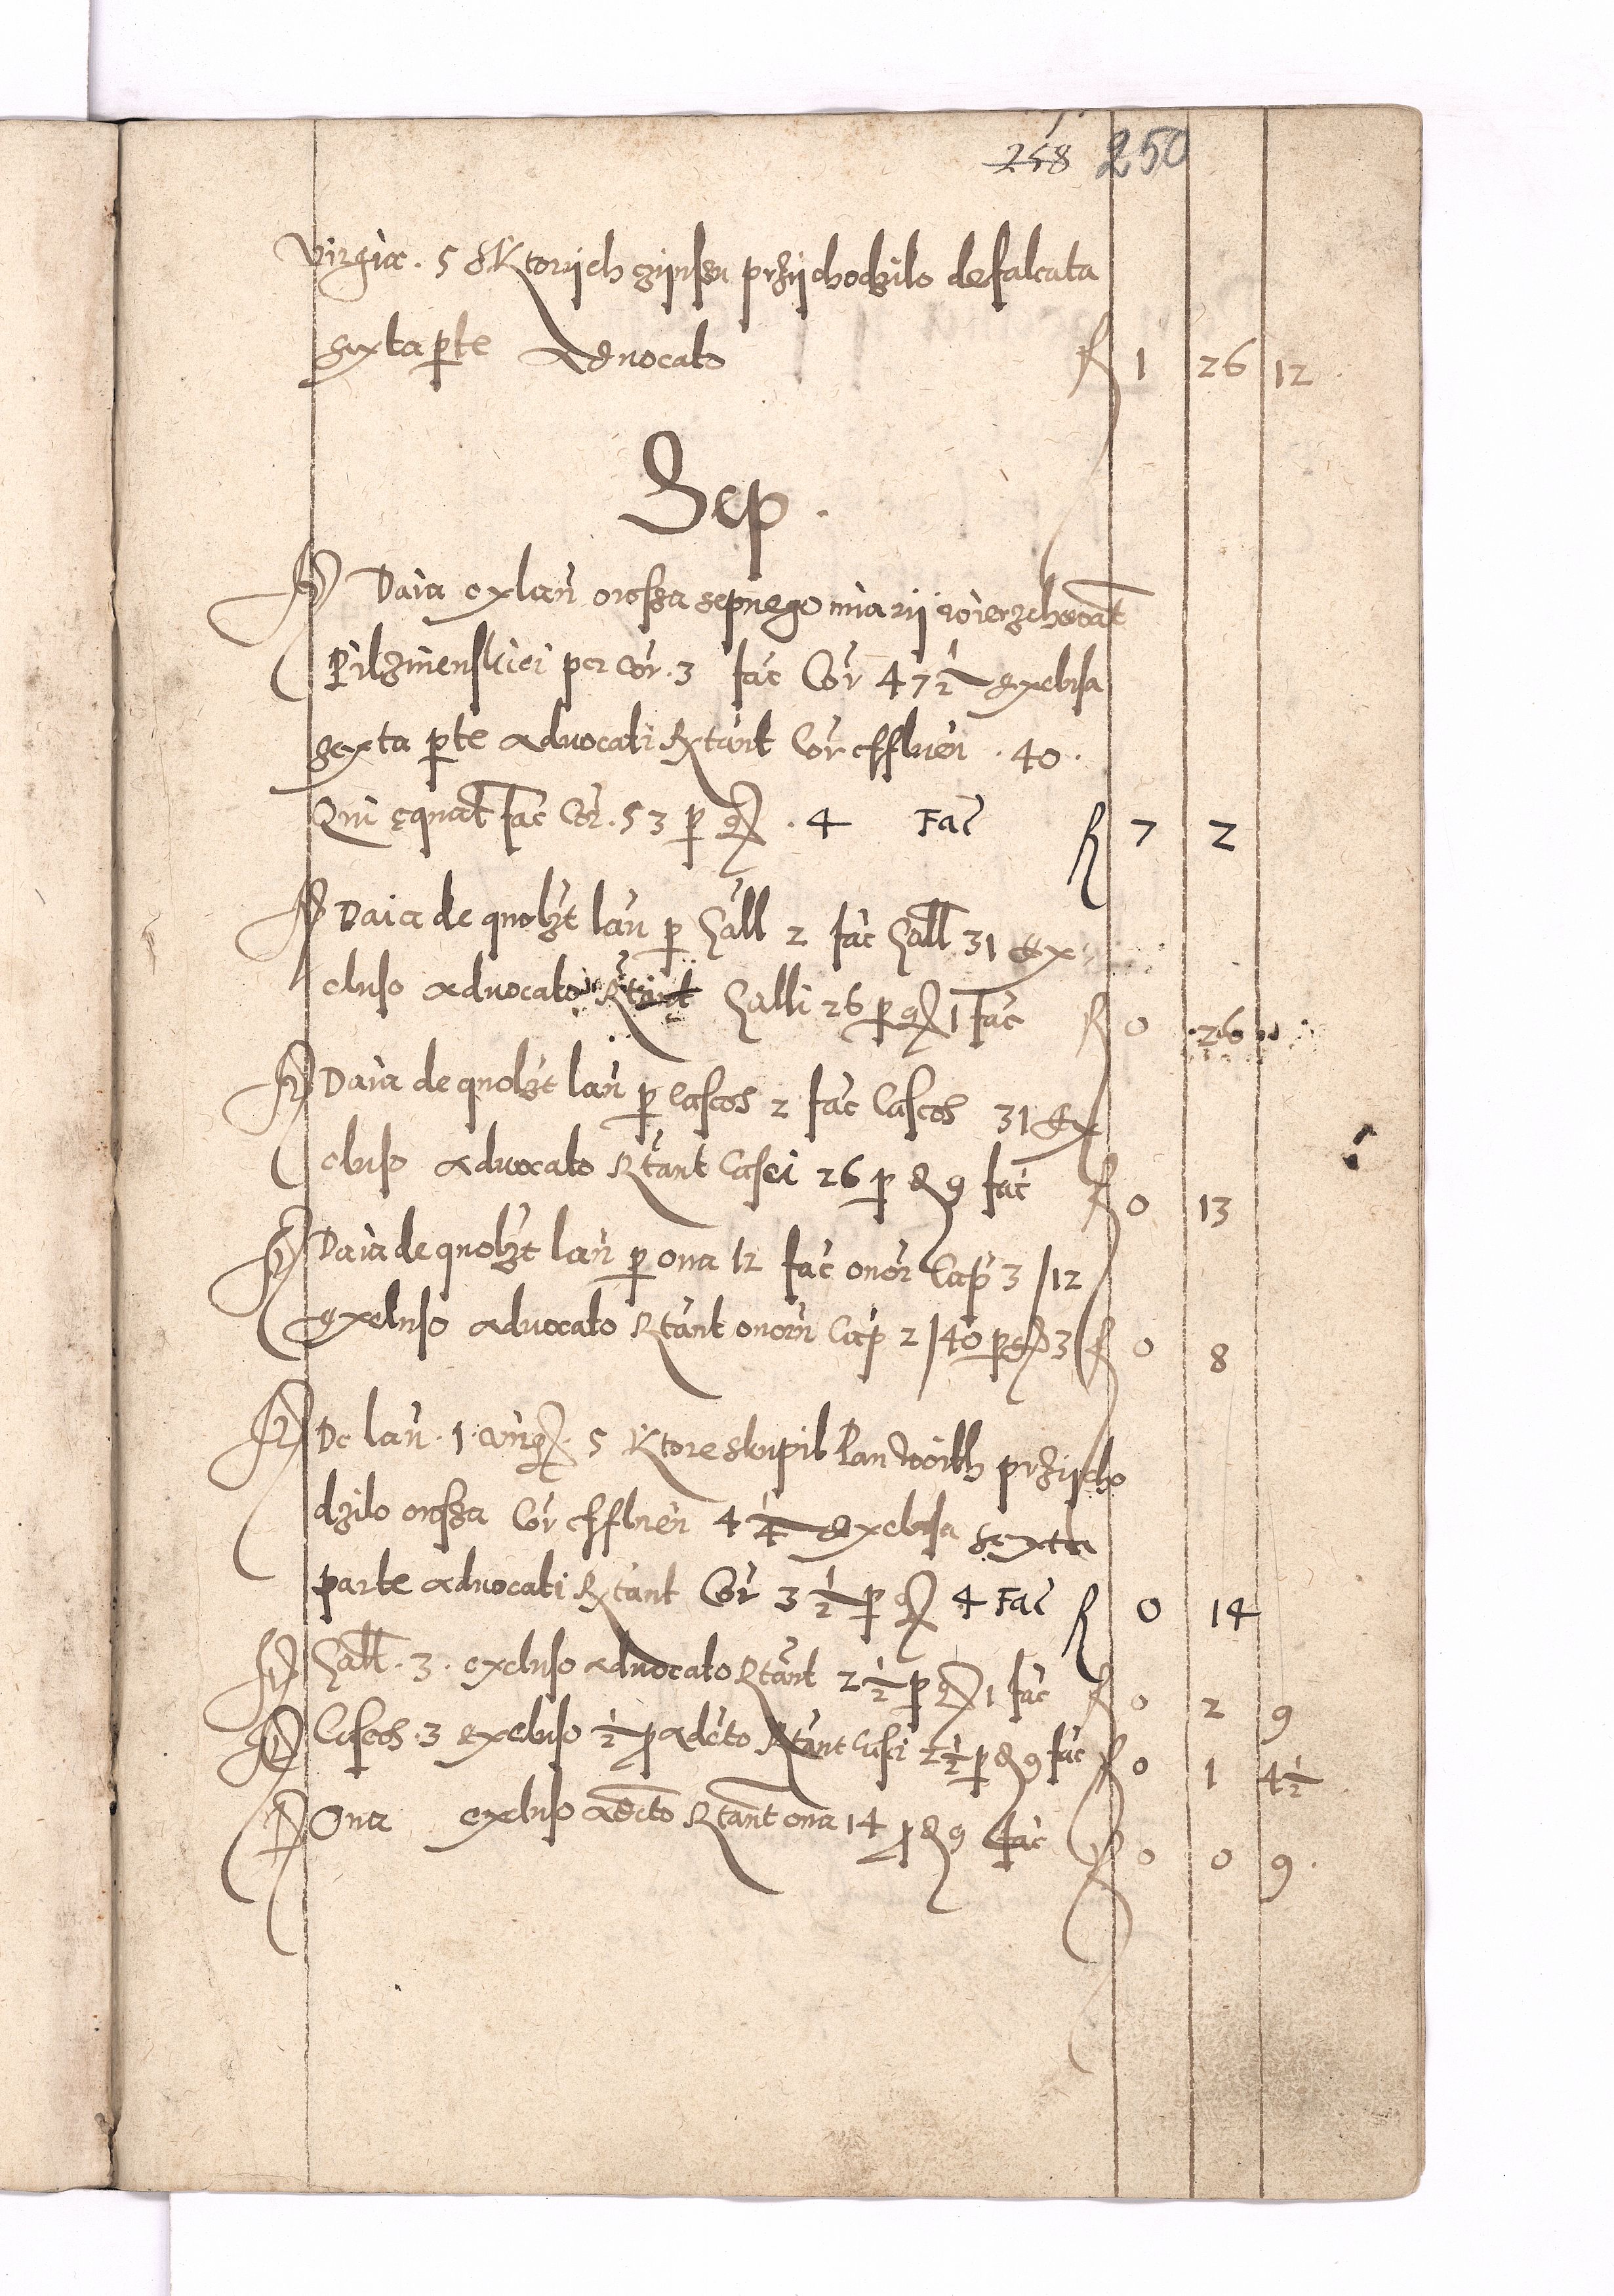 258 250
virgis . 5 8 Ktorijch czijnssu przijchodzilo defalcata
sexta parte Aduocato R 1 26 12
Sep .
Daia ex lan owssa sepnego miarij wierzchowat
Pilzmenskiei per Cor . 3 fac Cor 47 1/2 exclusa
sexta pte aduocati Rxtant Cor effluen . 40 .
Qui equat fac Cor . 53 p gr . 4 Fac R 7 2
Daia de quolzt lan p Gall 2 fac Gall 31 ex
cluso aduocato Rtant Galli 26 p gr 1 fac R 0 26
Daia de quolzt lan p Caseos 2 fac Caseos 31 Ex
cluso aduocato Rtant Casei 26 p d 9 fac R 0 13
Daia de quolzt lan p oua 12 fac ouor Cap 3 / 12
excluso aduocato Rtant ouorn Cap 2 / 40 p gr 3 R 0 8
De lan . 1 virg . 5 Ktore skupil Pan Woith przijcho
dzilo owssa Cor effluen 4 1/4 exclusa sexta
parte aduocati Rxtant Cor 3 1/2 p gr 4 Fac R 0 14
Gall . 3 . excluso aduocato Rtant 2 1/2 p gr 1 fac R 0 2 9
Caseos . 3 excluso 1/2 p adcto Rtant Casei 2 1/2 p d 9 fac R 0 1 4 1/2
Oua excluso adcto Rtant oua 14 p d 9 fac R 0 0 9 .